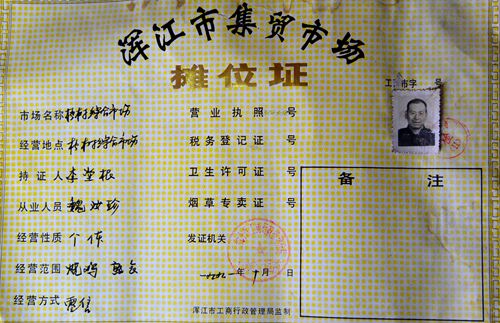 浑江市集贸市场
摊位证
工 市字 号
市场名称 综合市场
营业执照 号
经营地点 综合市场
税务登记证 号
持证人 李堂根
卫生许可证 号
备 注
从业人员 魏淑珍
烟草专卖证 号
经营性质 个体
发证机关
经营范围 烧鸡 熟食
一九九一年十月 日
经营方式 零售
浑江市工商行政管理局监制